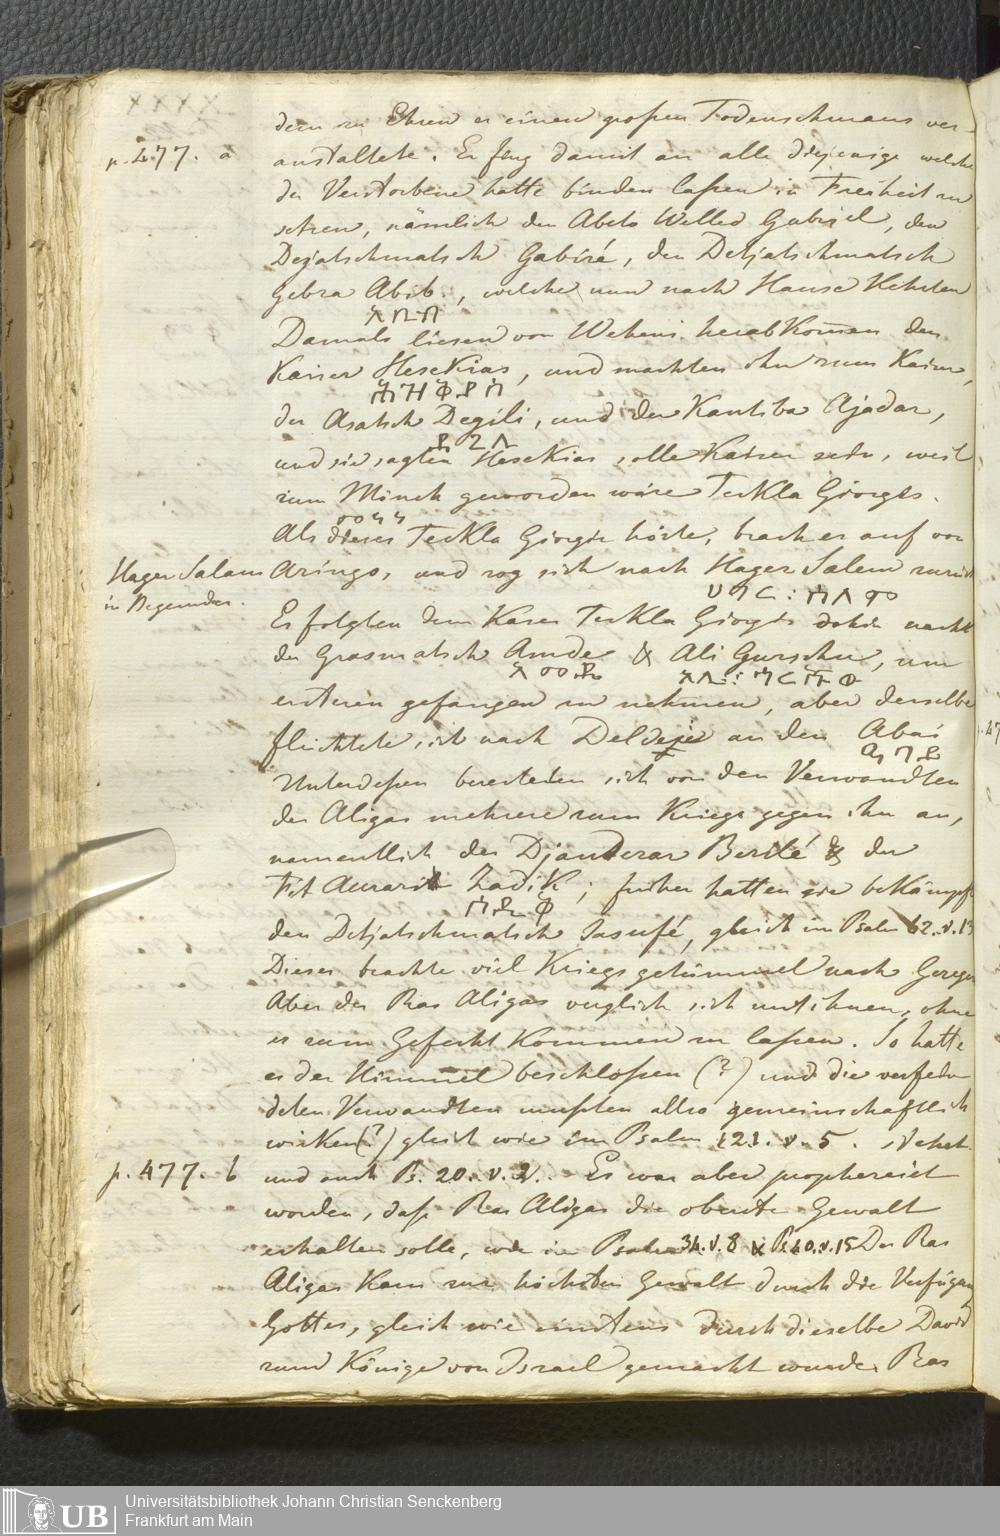 dem zu Ehren er einen großen Todenschmaus ver-
p. 477. a
anstaltete. Er fing damit an alle diejenige welche
der Verstorbene hatte binden laßen in Freiheit zu
setzen, nämlich den Abeto Welled Gabriel, den
Dejatschmatsch Gabiré, den Detjatschmatsch
Gebra Abib, welche nun nach Hause kehrten
አቢብ
Damals liesen von Weheni herabkom̄en den
Kaiser Hesekias, und machten ihn zum Kaiser,
ሕዝቅያስ
der Asatsch Degili, und der Kantiba Ajadar,
ደጊሊ
und sie sagten Hesekias solle Kaiser sein, weil
zum Minch geworden wäre Teckla Giorgis.
መነኵ
Als dieses Teckla Giorgis hörte, brach er auf von
Hager Salam
in Begemder.
Aringo, und zog sich nach Hager Salem zurück
ሀገር፡ሰላም
Es folgten dem Kaiser Teckla Giorgis dahin nach
der Grasmatsch Amde & Ali Gurschu, um
አምዴ አሊ፡ጉርሹ
ersteren gefangen zu nehmen, aber derselbe
flüchtete sich nach Deldeje an den Abai
ዓባይ
Unterdeßen bereiteten sich von den Verwandten
des Aligas mehrere zum Kriege gegen ihn an,
namentlich der Djanderar Bertlé & der
Fit Aurari Zadik; früher hatten sie bekämpft
ጻድቅ
den Detjatschmatsch Jasufé, gleich im Psalm 62. v. 13
Dieses brachte viel Kriegsgetümmel nach
Aber der Ras Aligas verglich sich mit ihnen, ohne
es zum Gefecht kommen zu laßen. So hatte
es der Himmel beschloßen (?) und die verfein-
deten Verwandten mußten also gemeinschaftlich
wirken (?) gleich wie im Psalm 121. v. 5. stehet
p. 477. b
und auch Ps. 20. v. 2. Es war aber propheseit
worden, daß Ras Aligas die oberste Gewalt
erhalten solle, wie im Psalm 34. v. 8 & Ps. 40. v. 15 Der Ras
Aligas kam zur höchsten Gewalt durch die Verfügung
Gottes, gleich wie einstens durch dieselbe David
zum Könige von Israel gemacht wurde. Ras
Universitätsbibliothek Johann Christian Senckenberg
Frankfurt am Main
UB